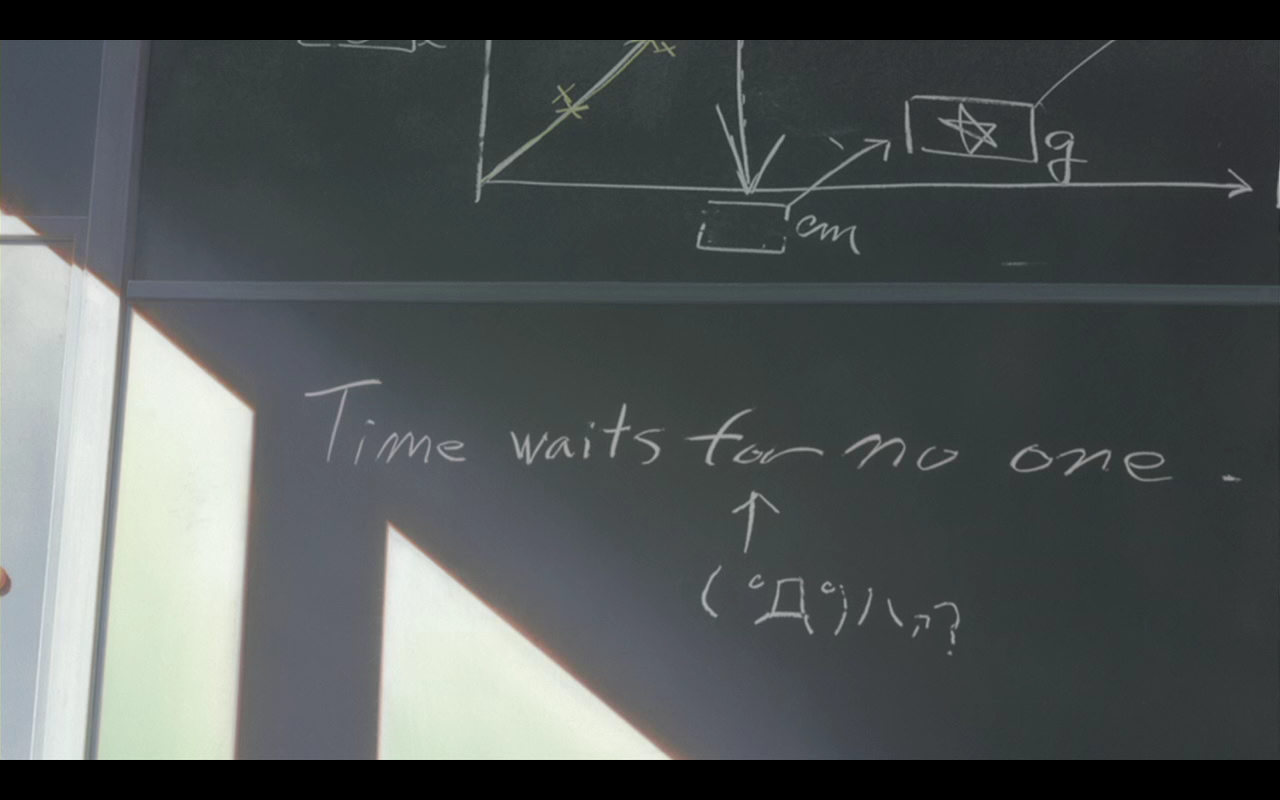 g
cm
Time waits for no one.
↑
( ﾟДﾟ)ハァ?